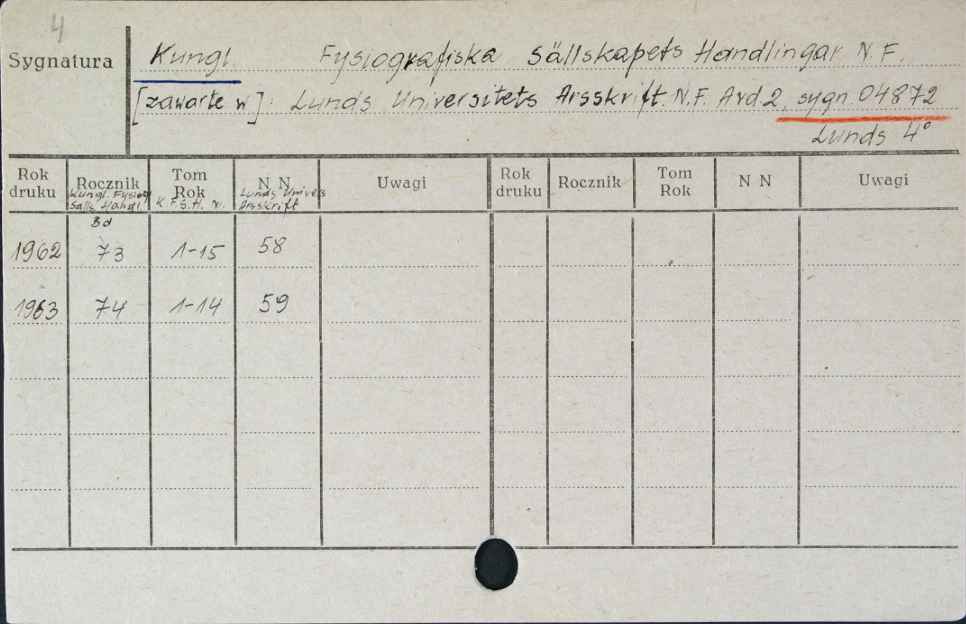 4
Sygnatura Kungl. Fysiografiska Sällskapets Handlingar N.F.
[zawarte w]: Lunds Universitets Arsskrift. N.F. Avd.2, sygn. 04872
Lunds 4°
Rok druku Rocznik Tom Rok N N Uwagi Rok druku Rocznik Tom Rok N N Uwagi
Kungl. Fysiog Sällk Handl. K.F.S.H. Lunds Univers Arsskrift
Bd
1962 73 1-15 58
1963 74 1-14 59